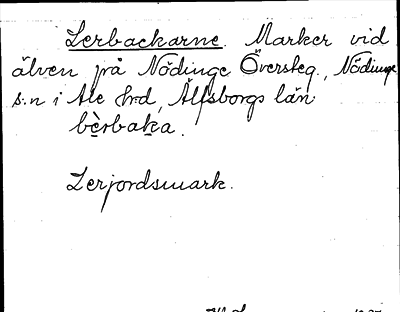 Lerbackarne. Marker vid
älven på Nödinge Översteg., Nödinge
s:n i Ale hrd, Älfsborgs län
bèrbaka.
Lerjordsmark.